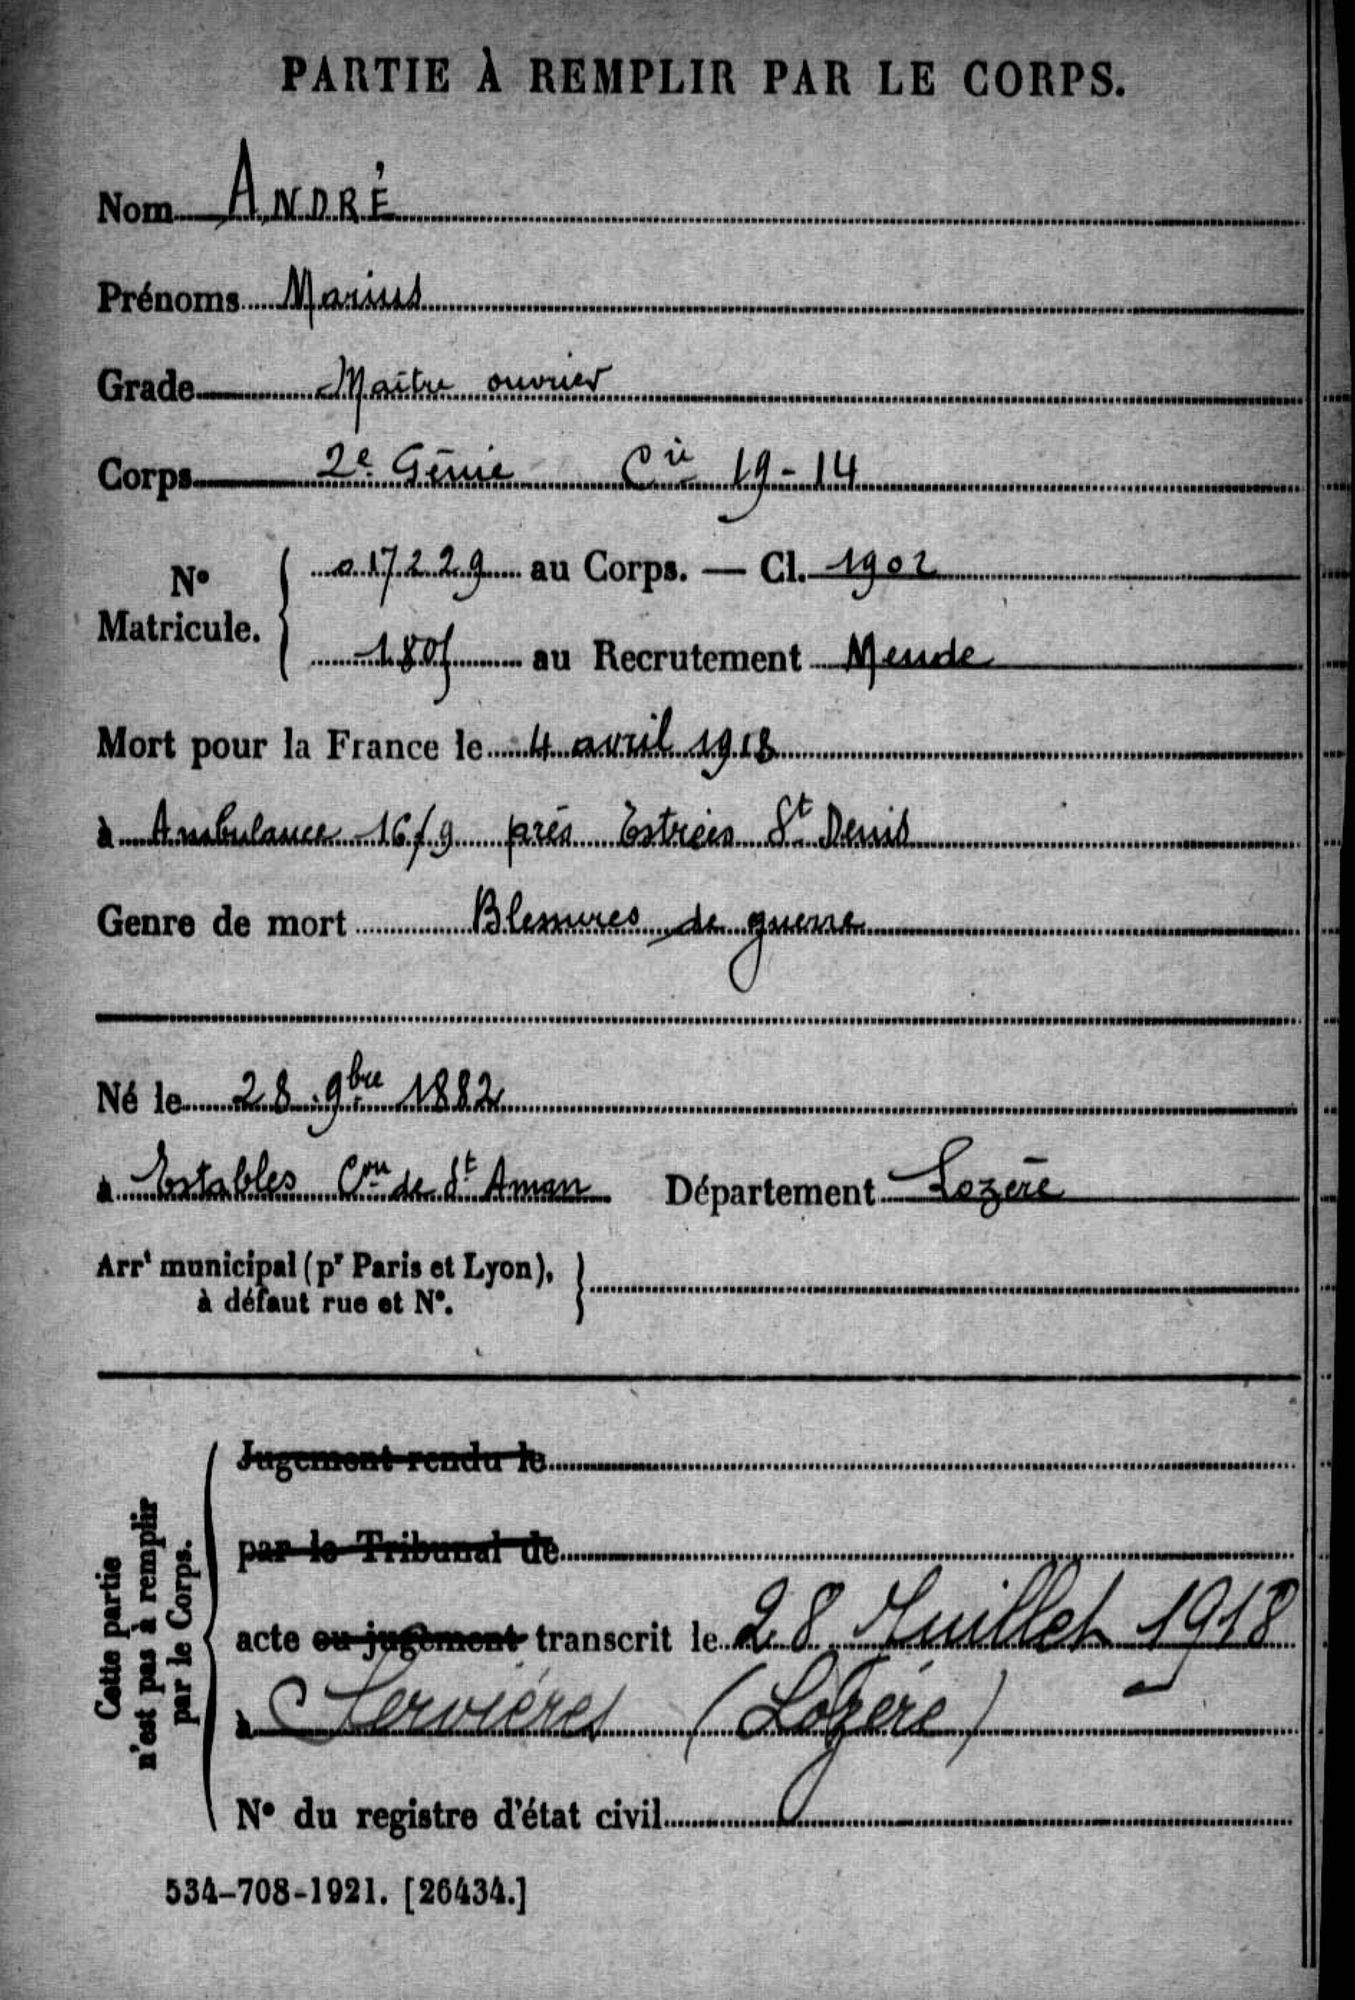 PARTIE À REMPLIR PAR LE CORPS.
Nom ANDRÉ
Prénoms Marius
Grade Maître ouvrier
Corps 2e Génie Cie 19-14
N° Matricule. 017229 au Corps. — Cl. 1902
1805 au Recrutement Mende
Mort pour la France le 4 avril 1918
à Ambulance 16/9 près Estrées St Denis
Genre de mort Blessures de guerre
Né le 28 9bre 1882
à Estables Cne de St Aman Département Lozère
Arrt municipal (pr Paris et Lyon),
à défaut rue et N°.
Cette partie
n'est pas à remplir
par le Corps.
Jugement rendu le
par le Tribunal de
acte ou jugement transcrit le 28 Juillet 1918
à Servières (Lozère)
N° du registre d'état civil
534-708-1921. [26434.]